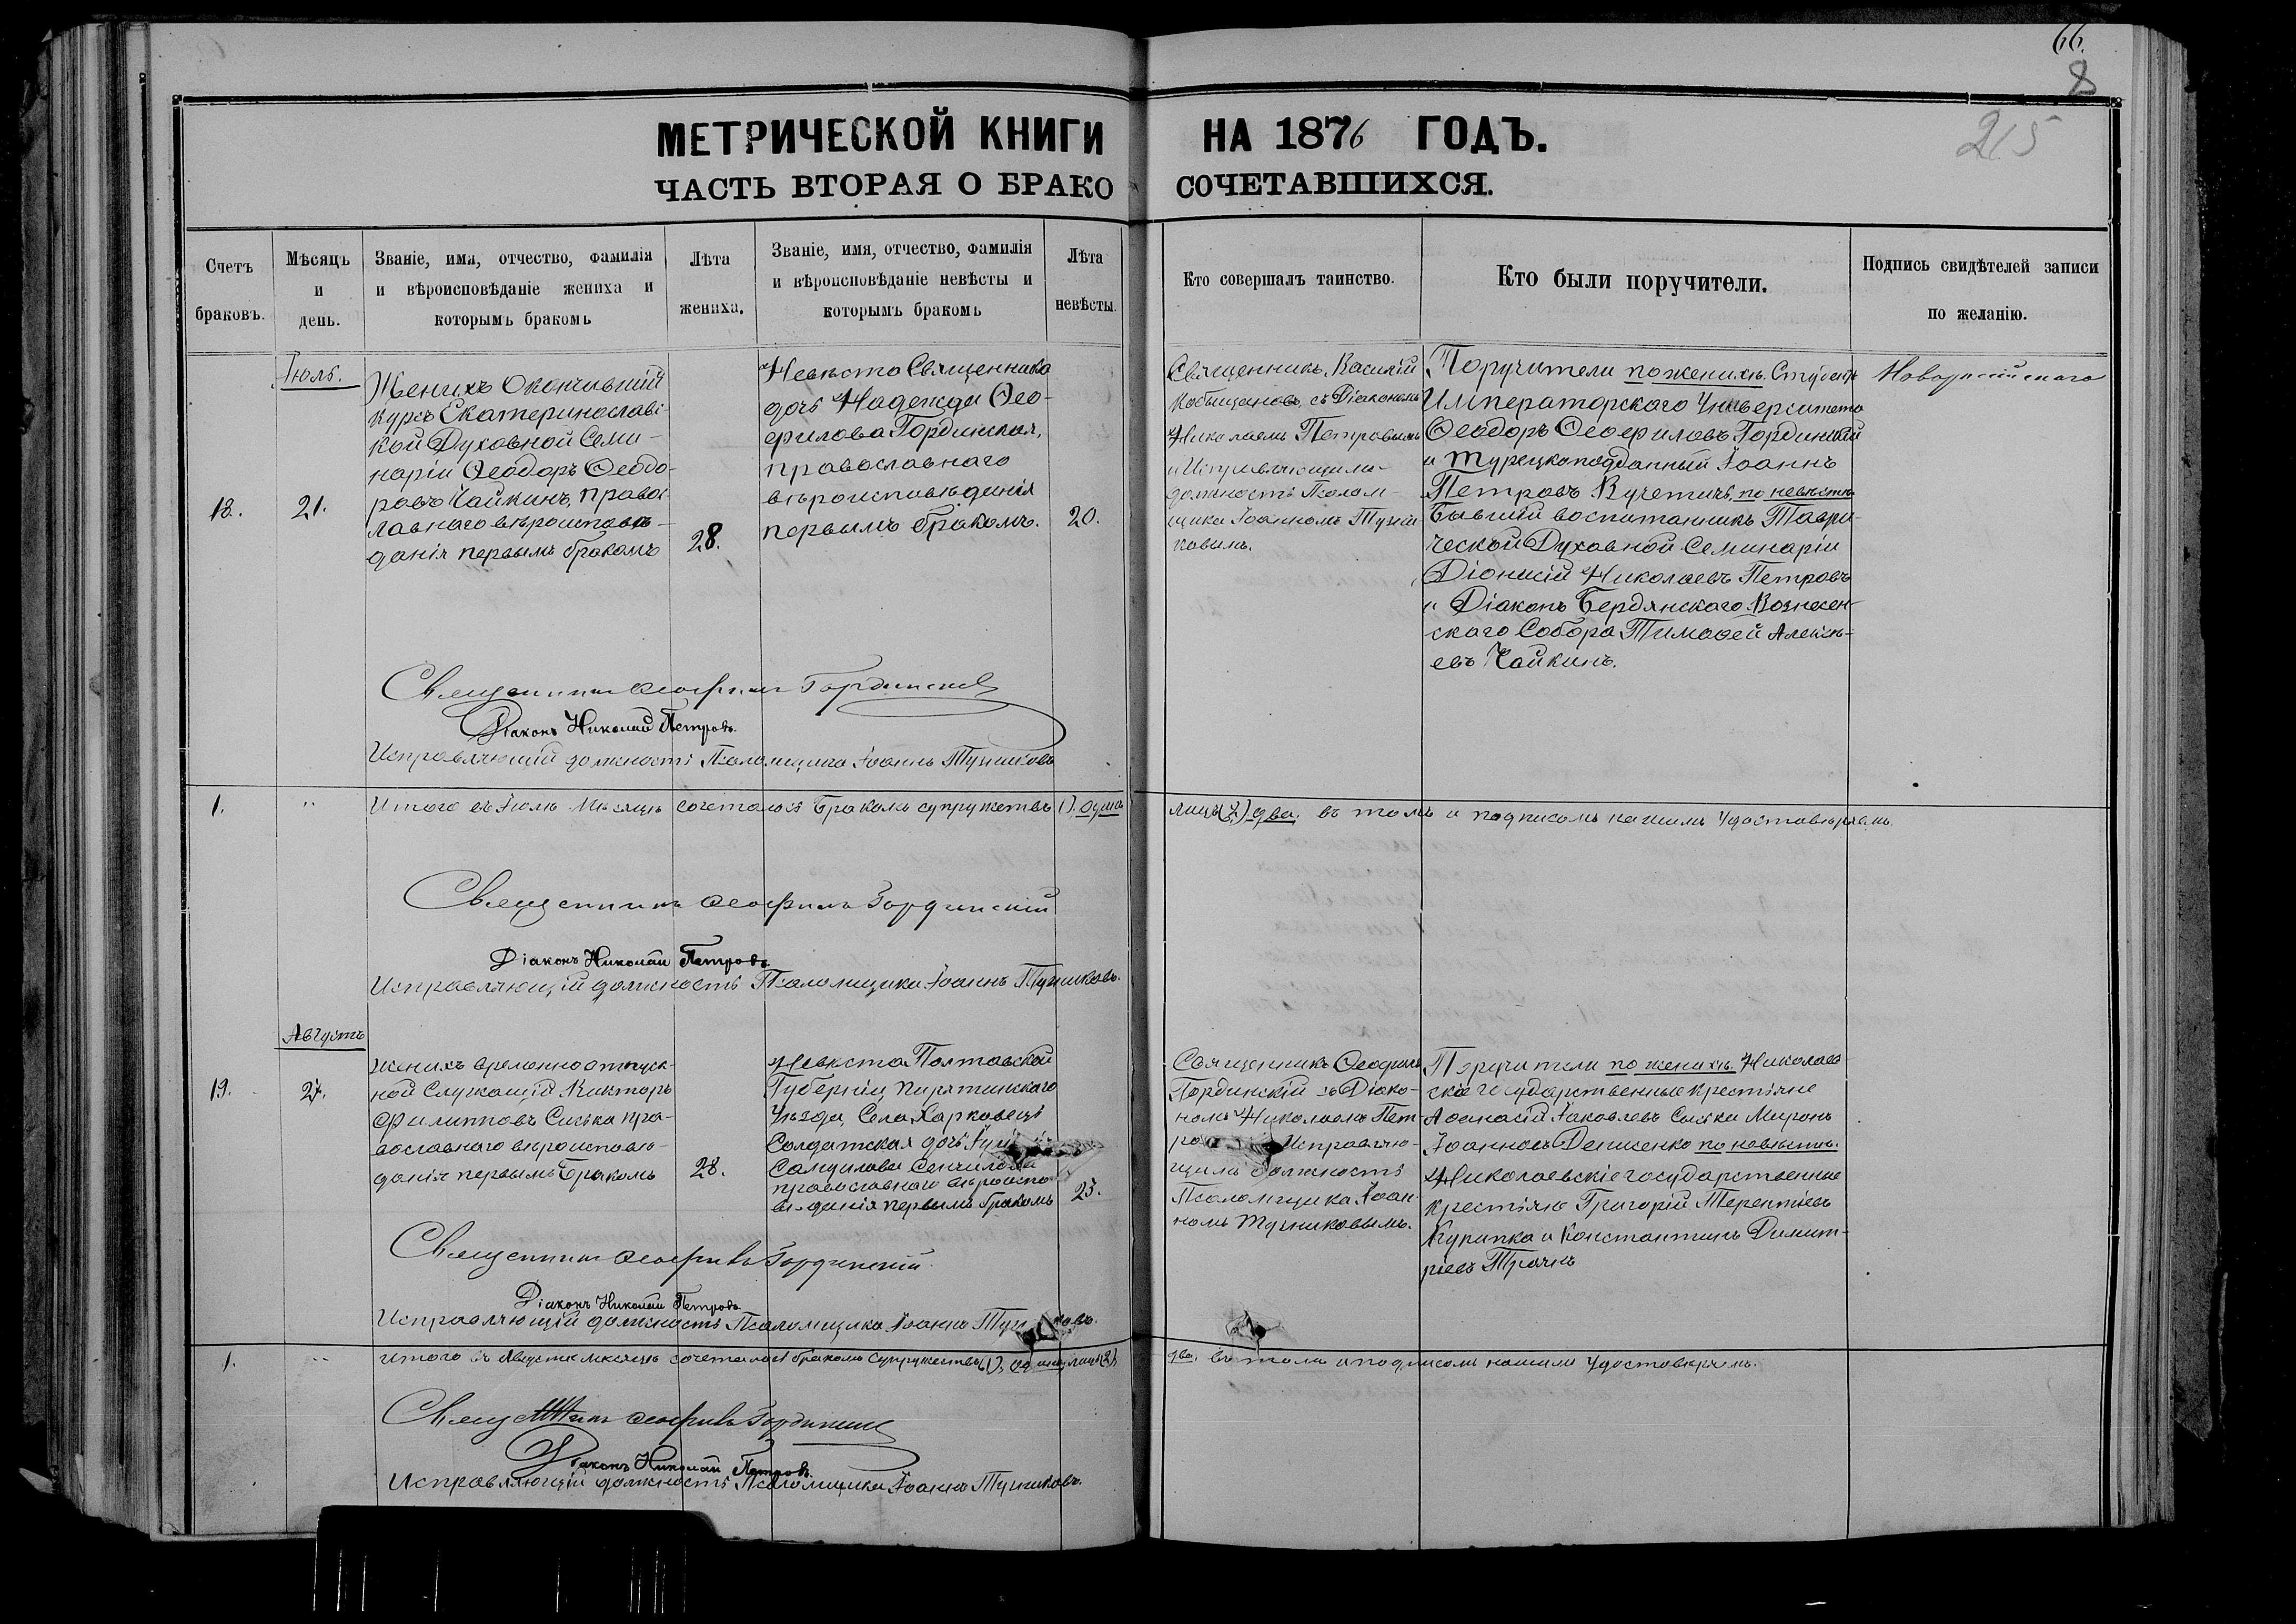 66.
8
215
МЕТРИЧЕСКОЙ КНИГИ НА 1876 ГОДЪ.
ЧАСТЬ ВТОРАЯ О БРАКОСОЧЕТАВШИХСЯ.
Счетъ браковъ.
Мѣсяцъ и день.
Званіе, имя, отчество, фамилія
и вѣроисповѣданіе жениха и
которымъ бракомъ
Лѣта жениха.
Званіе, имя, отчество, фамилія
и вѣроисповѣданіе невѣсты и
которымъ бракомъ
Лѣта невѣсты.
Кто совершалъ таинство.
Кто были поручители.
Подпись свидѣтелей записи
по желанію.
18.
Іюль.
21.
Женихъ Окончившій
курсъ Екатеринославс-
кой Духовной Семи-
наріи Ѳеодоръ Ѳеодо-
ровъ Чайкинъ, правос-
лавнаго вѣроисповѣ-
данія первымъ бракомъ
28.
Невѣста Священника
дочь Надежда Ѳео-
филова Гординская,
православнаго
вѣроисповѣданія
первымъ бракомъ.
20.
Священникъ Василій
съ Діакономъ
Николаемъ Петровымъ
и Исправляющимъ
должность Псалом-
щика Іоанномъ Тучни-
ковымъ.
Поручители по женихѣ. Студентъ Новороссійскаго
Императорскаго Университета
Ѳеодоръ Ѳеофиловъ Гординскій
и турецкоподданный Іоаннъ
Петровъ Вучетичъ, по невѣстѣ
Бывшій воспитанникъ Таври-
ческой Духовной Семинаріи
Діонисій Николаевъ Петровъ
и Діаконъ Бердянскаго Вознесен-
скаго Собора Тимоѳей Алексѣ-
евъ Чайкинъ.
Священникъ Ѳеофилъ Гординскій
Діаконъ Николай Петровъ.
Исправляющій должность Псаломщика Іоаннъ Тучниковъ
1. " Итого въ Іюлѣ мѣсяцѣ сочеталось бракомъ супружествъ (1), одна лицъ (2) два, въ томъ и подписомъ нашимъ удостовѣряемъ.
Священникъ Ѳеофилъ Гординскій
Діаконъ Николай Петровъ
Исправляющій должность Псаломщика Іоаннъ Тучниковъ.
19.
Августъ
27.
Женихъ временноотпуск-
ной Служащій Викторъ
Филипповъ пра-
вославнаго вѣроисповѣ-
данія первымъ бракомъ
28.
Невѣста Полтавской
Губерніи Пирятинскаго
Уѣзда, Села Харковецъ
Солдатская дочь
Самуилова
православнаго вѣроиспо-
вѣданія первымъ бракомъ
23.
Священникъ Ѳеофилъ
Гординскій съ Діако-
номъ Николаемъ Пет-
ро Исправляю-
щимъ должность
Псаломщика Іоан-
номъ Тучниковымъ.
Поручители по женихѣ. Николаев-
скіе государственные крестьяне
Аѳанасій Іаковлевъ Миронъ
Іоанновъ Денисенко по невѣстѣ.
Николаевскіе государственные
крестьяне Григорій Терентіевъ
Курипка и Константинъ Димит-
ріевъ
Священникъ Ѳеофилъ Гординскій
Діаконъ Николай Петровъ
Исправляющій должность Псаломщика Іоаннъ Туч ковъ.
1. " Итого въ Августѣ мѣсяцѣ сочеталось бракомъ супружествъ (1), одна, лицъ (2) два, въ томъ и подписомъ нашимъ удостовѣряемъ.
Священникъ Ѳеофилъ Гординскій
Діаконъ Николай Петровъ.
Исправляющій должность Псаломщика Іоаннъ Тучниковъ.